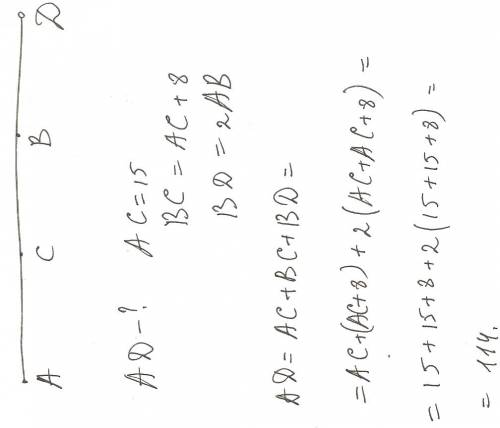 A C B D
AD - ? AC = 15
BC = AC + 8
BD = 2AB
AD = AC + BC + BD =
= AC + (AC + 8) + 2 (AC + AC + 8) =
= 15 + 15 + 8 + 2 (15 + 15 + 8) =
= 114.